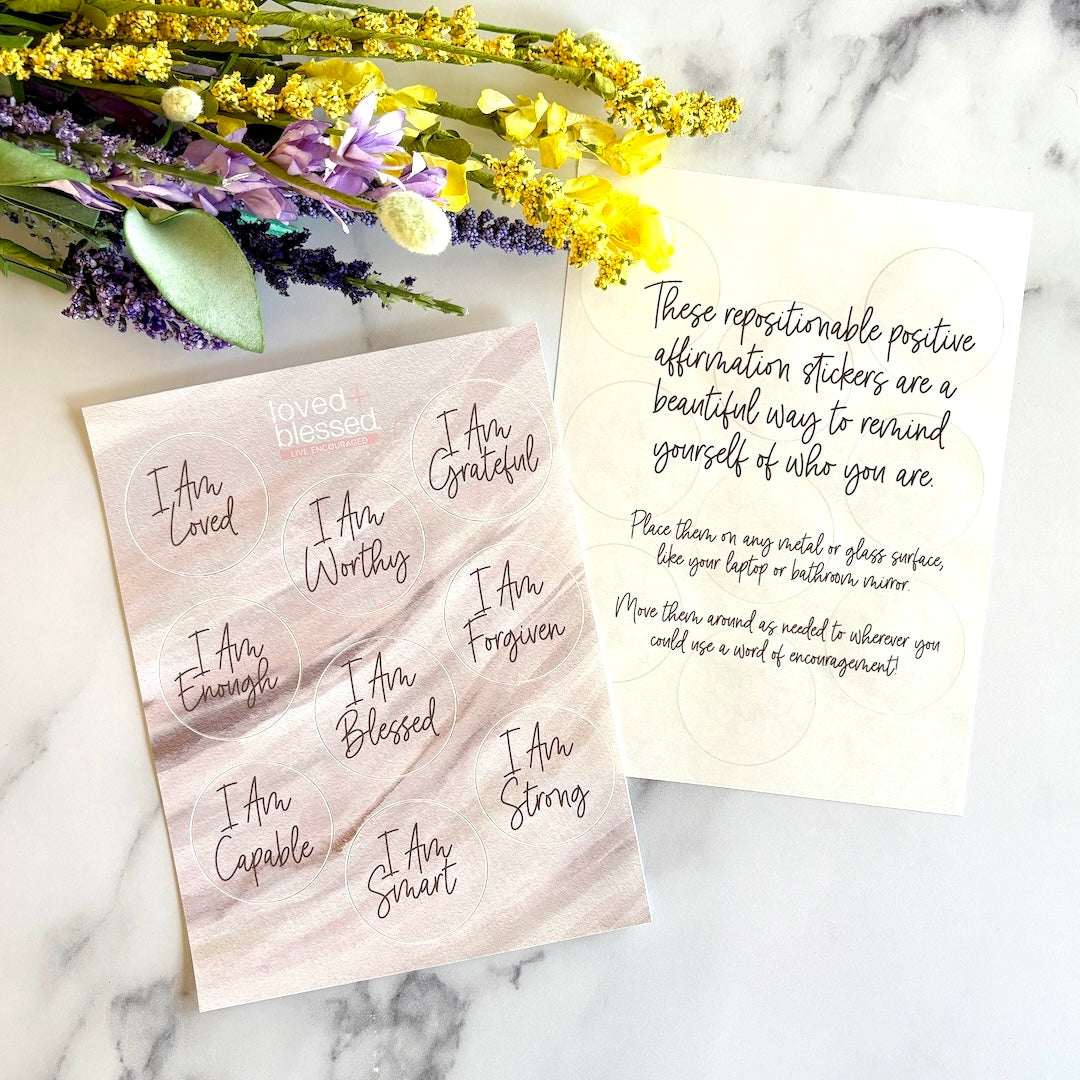 loved+
blessed
LIVE ENCOURAGED
I Am
Loved
I Am
Worthy
I Am
Grateful
I Am
Enough
I Am
Blessed
I Am
Forgiven
I Am
Capable
I Am
Smart
I Am
Strong
These repositionable positive
affirmation stickers are a
beautiful way to remind
yourself of who you are.
Place them on any metal or glass surface,
like your laptop or bathroom mirror.
Move them around as needed to wherever you
could use a word of encouragement!